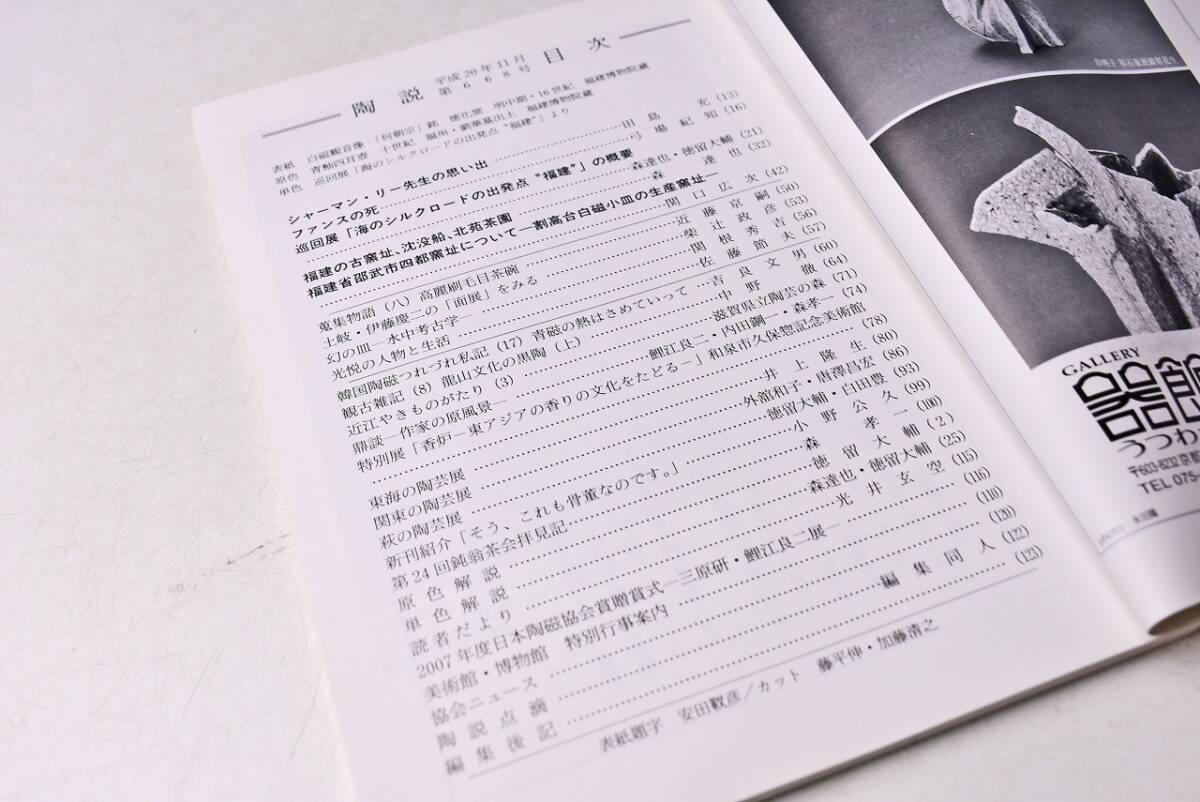 陶説 平成20年11月 第668号 目次
表紙 白磁観音像 「何朝宗」銘 徳化窯 明中期・16世紀 福建博物院蔵
原色 青釉四耳壺 十世紀 福州・劉華墓出土 福建博物院蔵
単色 巡回展「海のシルクロードの出発点“福建”」より
シャーマン・リー先生の思い出 田島充 (13)
ファンスの死 弓場紀知 (16)
巡回展「海のシルクロードの出発点“福建”」の概要 森達也・徳留大輔 (21)
福建の古窯址、沈没船、北苑茶園 森達也 (32)
福建省邵武市四都窯址について―割高台白磁小皿の生産窯址― 関口広次 (42)
蒐集物語(八) 高麗刷毛目茶碗 近藤京嗣 (50)
土岐・伊藤慶二の「面展」をみる 柴辻政彦 (53)
幻の皿―水中考古学― 関根秀吉 (56)
光悦の人物と生活 佐藤節夫 (57)
韓国陶磁つれづれ私記(17) 青磁の熱はさめていって 吉良文男 (60)
観古雑記(8) 龍山文化の黒陶(上) 中野徹 (64)
近江やきものがたり(3) 滋賀県立陶芸の森 (71)
鼎談―作家の原風景― 鯉江良二・内田鋼一・森孝一 (74)
特別展「香炉―東アジアの香りの文化をたどる―」和泉市久保惣記念美術館 (78)
東海の陶芸展 井上隆生 (80)
関東の陶芸展 外舘和子・唐澤昌宏 (86)
萩の陶芸展 徳留大輔・白田豊 (93)
新刊紹介「そう、これも骨董なのです。」 小野公久 (99)
第24回鈍翁茶会拝見記 森孝一 (100)
原色解説 徳留大輔 (2)
単色解説 森達也・徳留大輔 (25)
読者だより 光井玄空 (115)
2007年度日本陶磁協会賞贈賞式―三原研・鯉江良二展― (116)
美術館・博物館 特別行事案内 (110)
協会ニュース (120)
陶説点滴 編集同人 (122)
編集後記 (123)
表紙題字 安田靫彦/カット 藤平伸・加藤清之
GALLERY
器館
うつわ
〒603-8232 京都
TEL 075-